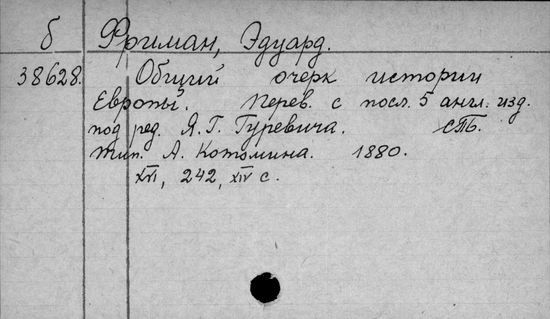 б Фриман, Эдуард.
38628. Общий очерк истории
Европы. Перев. с посл. 5 англ. изд.
под ред. Я. Г. Гуревича. СПБ.
тип. А. Котомина. 1880.
XVI, 242, XIV с.